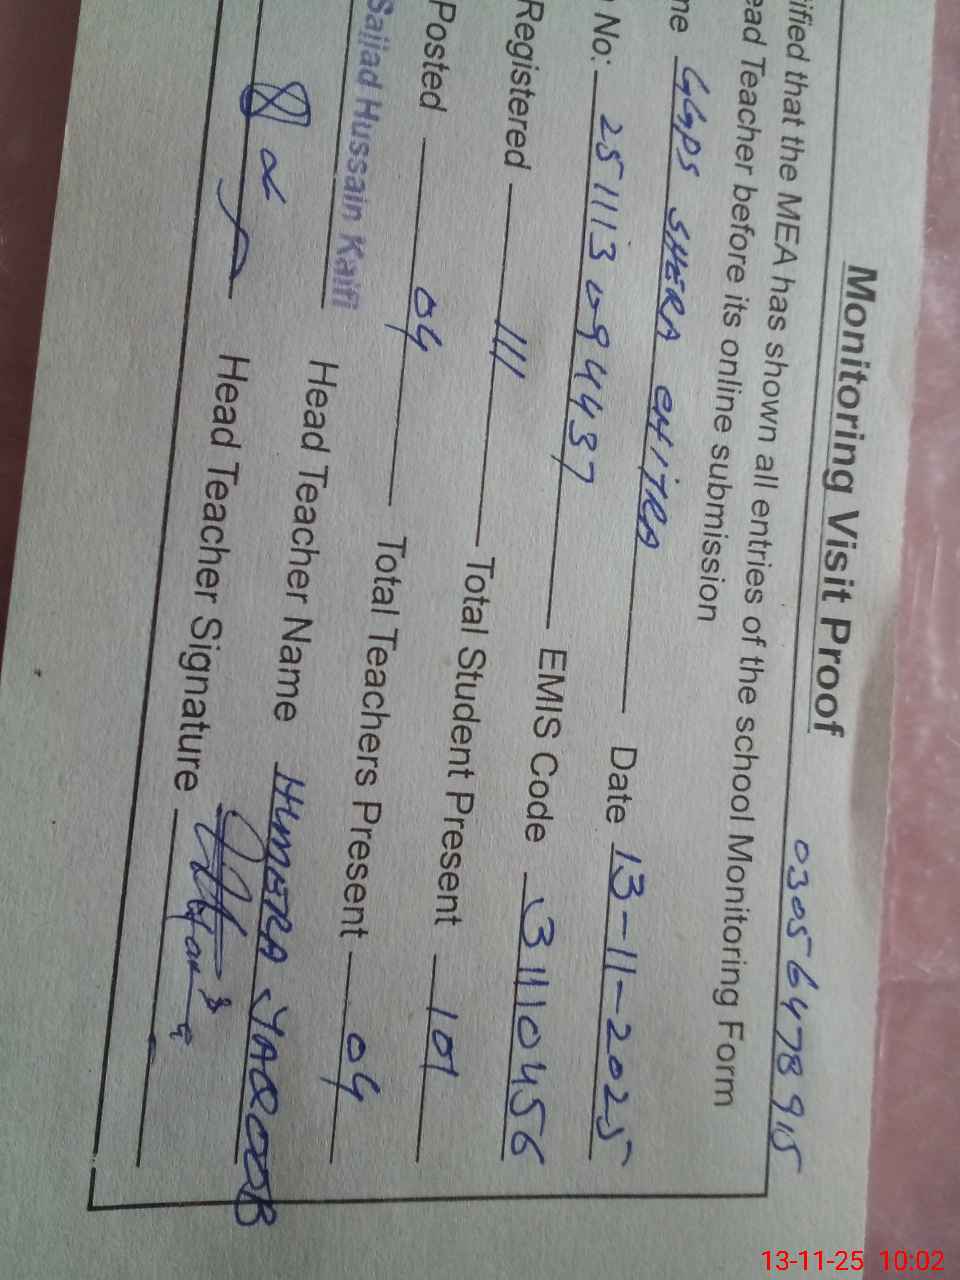 Monitoring Visit Proof 03056478915
ified that the MEA has shown all entries of the school Monitoring Form
ead Teacher before its online submission
me GGPS SHERA CHITRA Date 13-11-2025
No: 251113094437 EMIS Code 31110456
Registered 111 Total Student Present 101
Posted 04 Total Teachers Present 04
Sajjad Hussain Head Teacher Name HUMERA YAQOOB
Head Teacher Signature
13-11-25 10:02